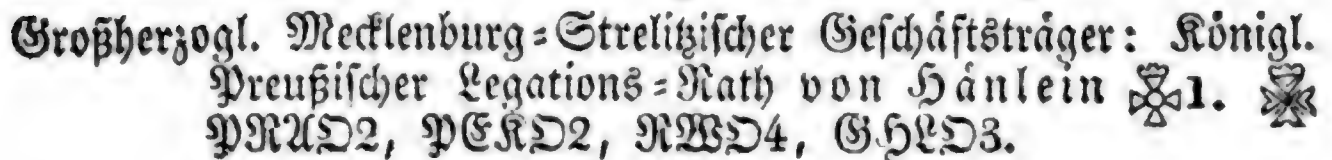 Großherzogl. Mecklenburg-Strelitzischer Geschäftsträger: Königl.
Preußischer Legations-Rath von Hänlein 1.
PRAO2, PEKO2, RWO4, GHLO3.